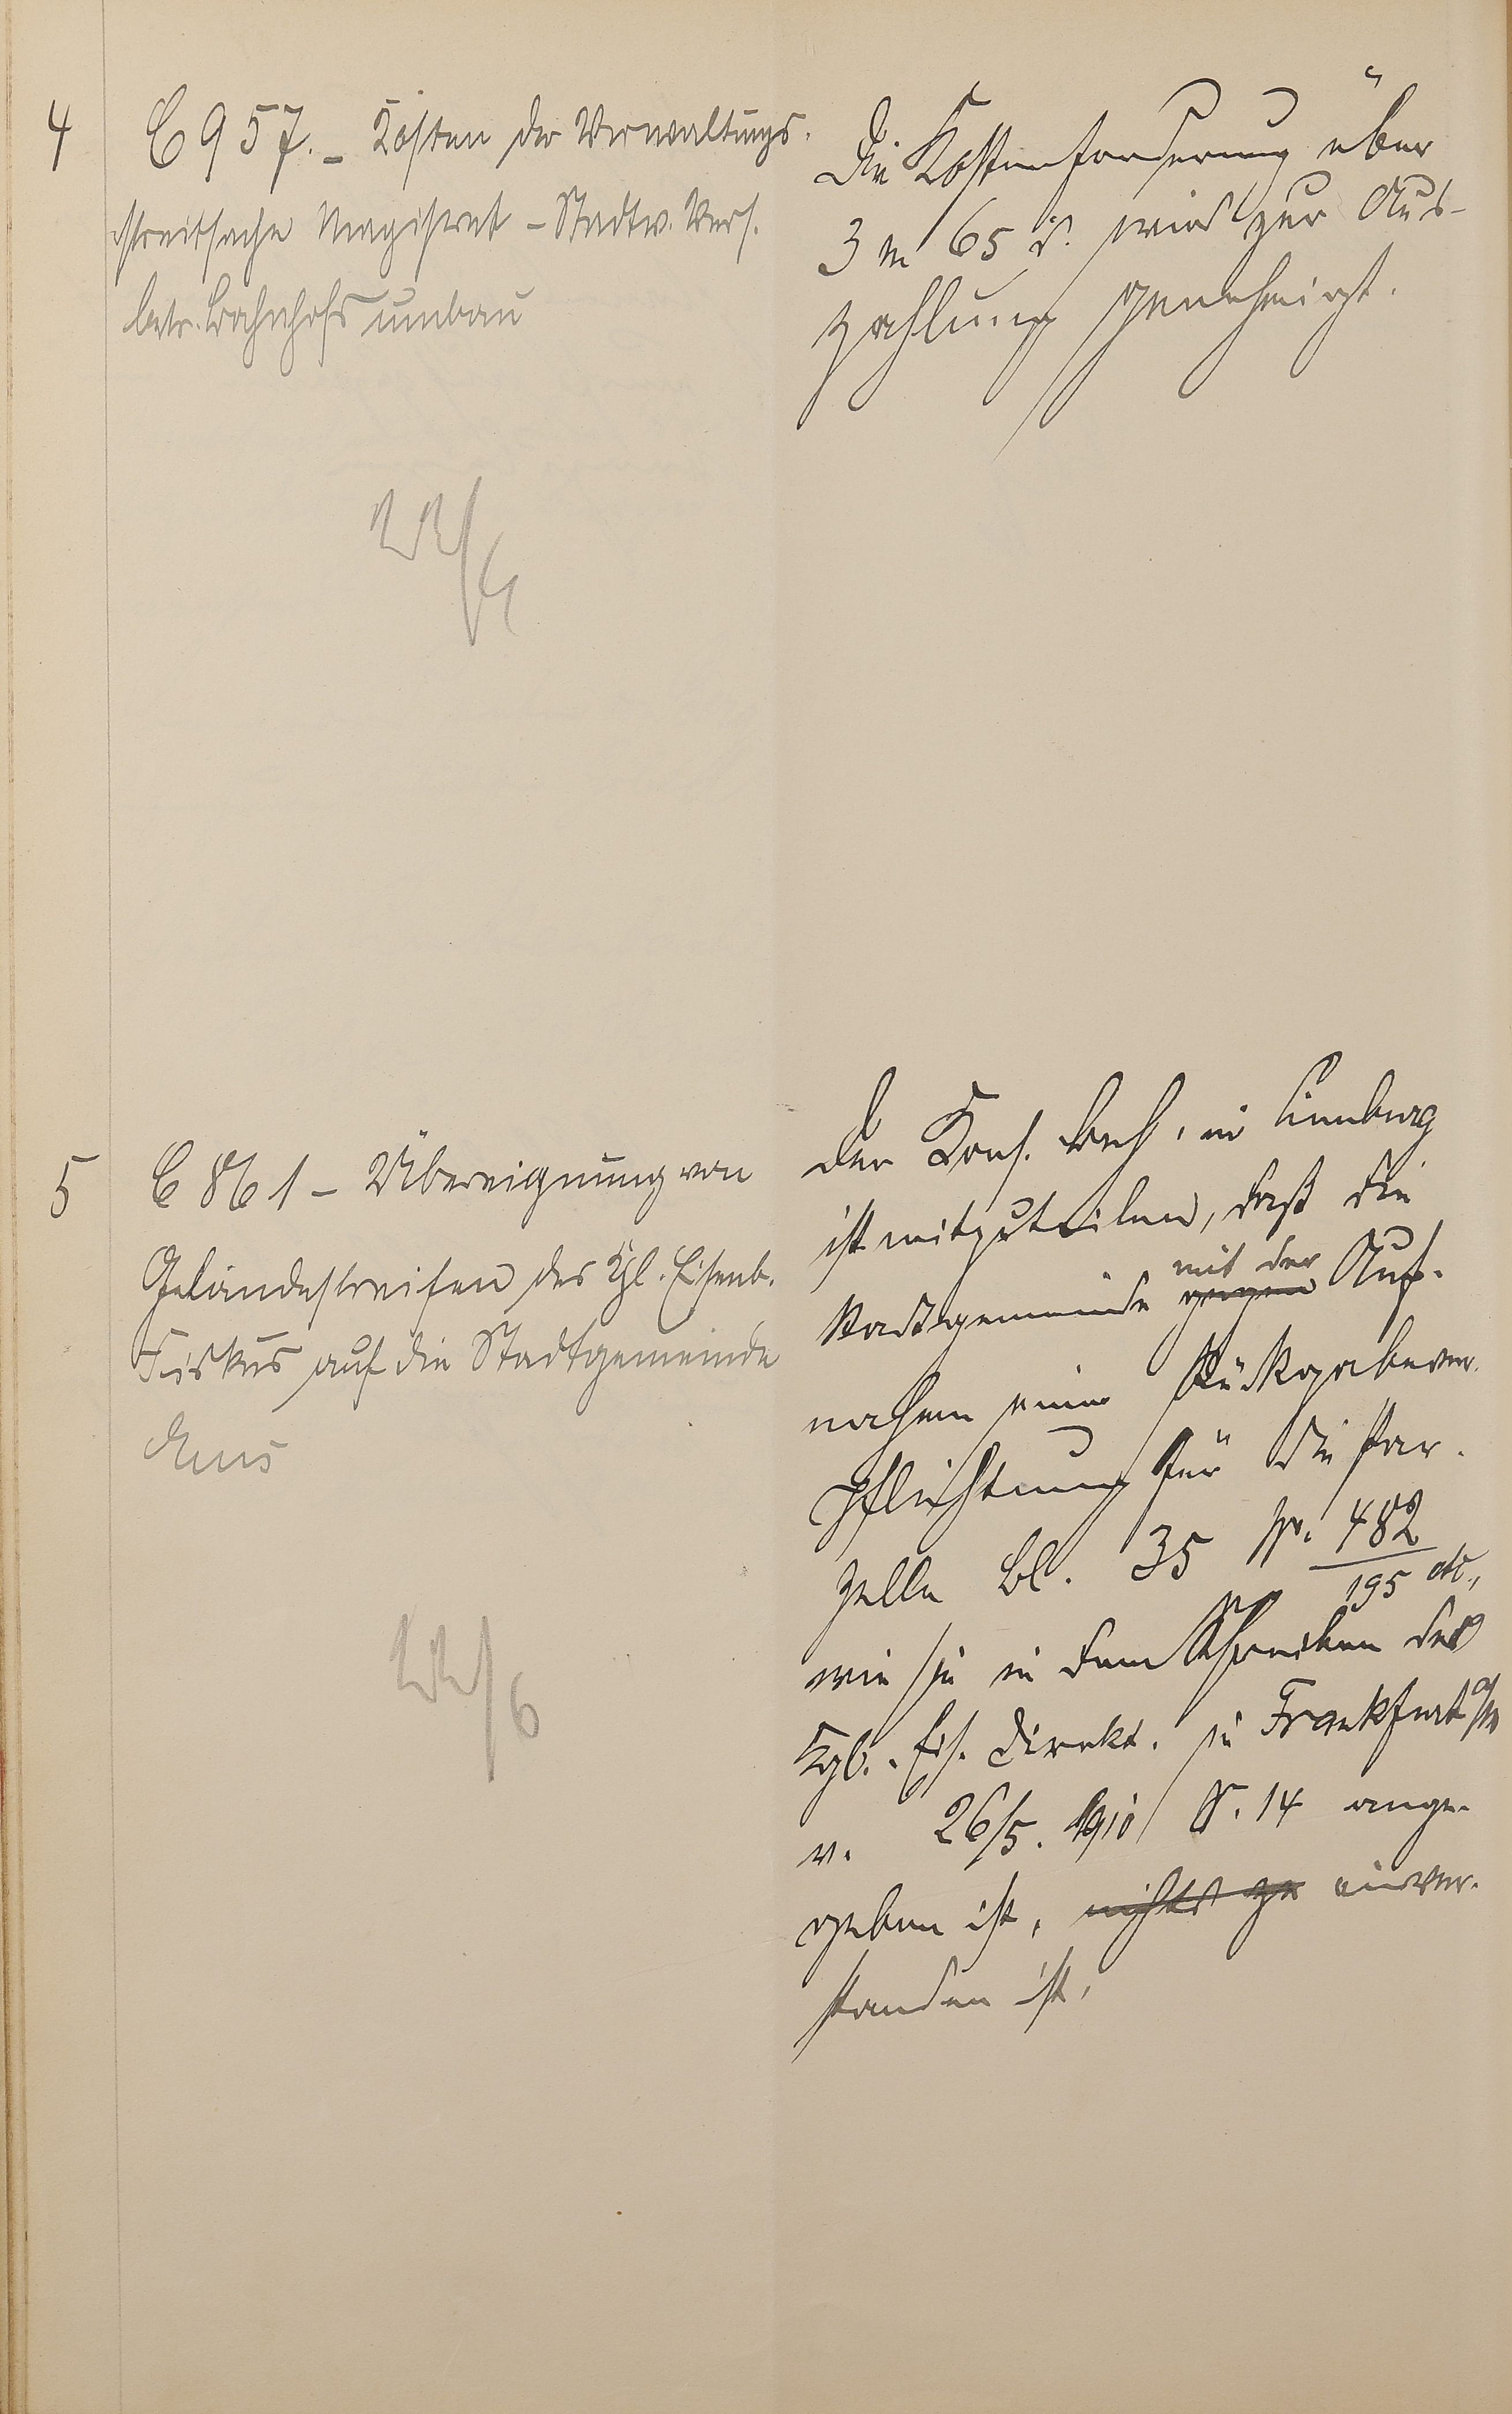 4
C 957. - Kosten der Verwaltungs-
streitsache Magistrat - Stadtv. Vers.
betr. Bahnhofsumbau
Die Kostenforderung über
3 M 65 d. wird zur Aus-
zahlung genehmigt.
5
C 861 - Übereignung von
Geländestreifen des Kgl. Eisenb.
Fiskus auf die Stadtgemeinde
Ems
Der Kons. in Limburg
ist mitzuteilen, daß die
mit der
Stadtgemeinde gegen Auf-
nahme einer Rückgabever-
pflichtung für die Par-
zelle Bl. 35 No. 482/195 etc.,
wie sie in dem Schreiben der
Kgl. Eis. Direkt. in Frankfurt a/M
v. 26/5. 1910 S. 14 ange-
geben ist, nichts zu einver-
standen ist.